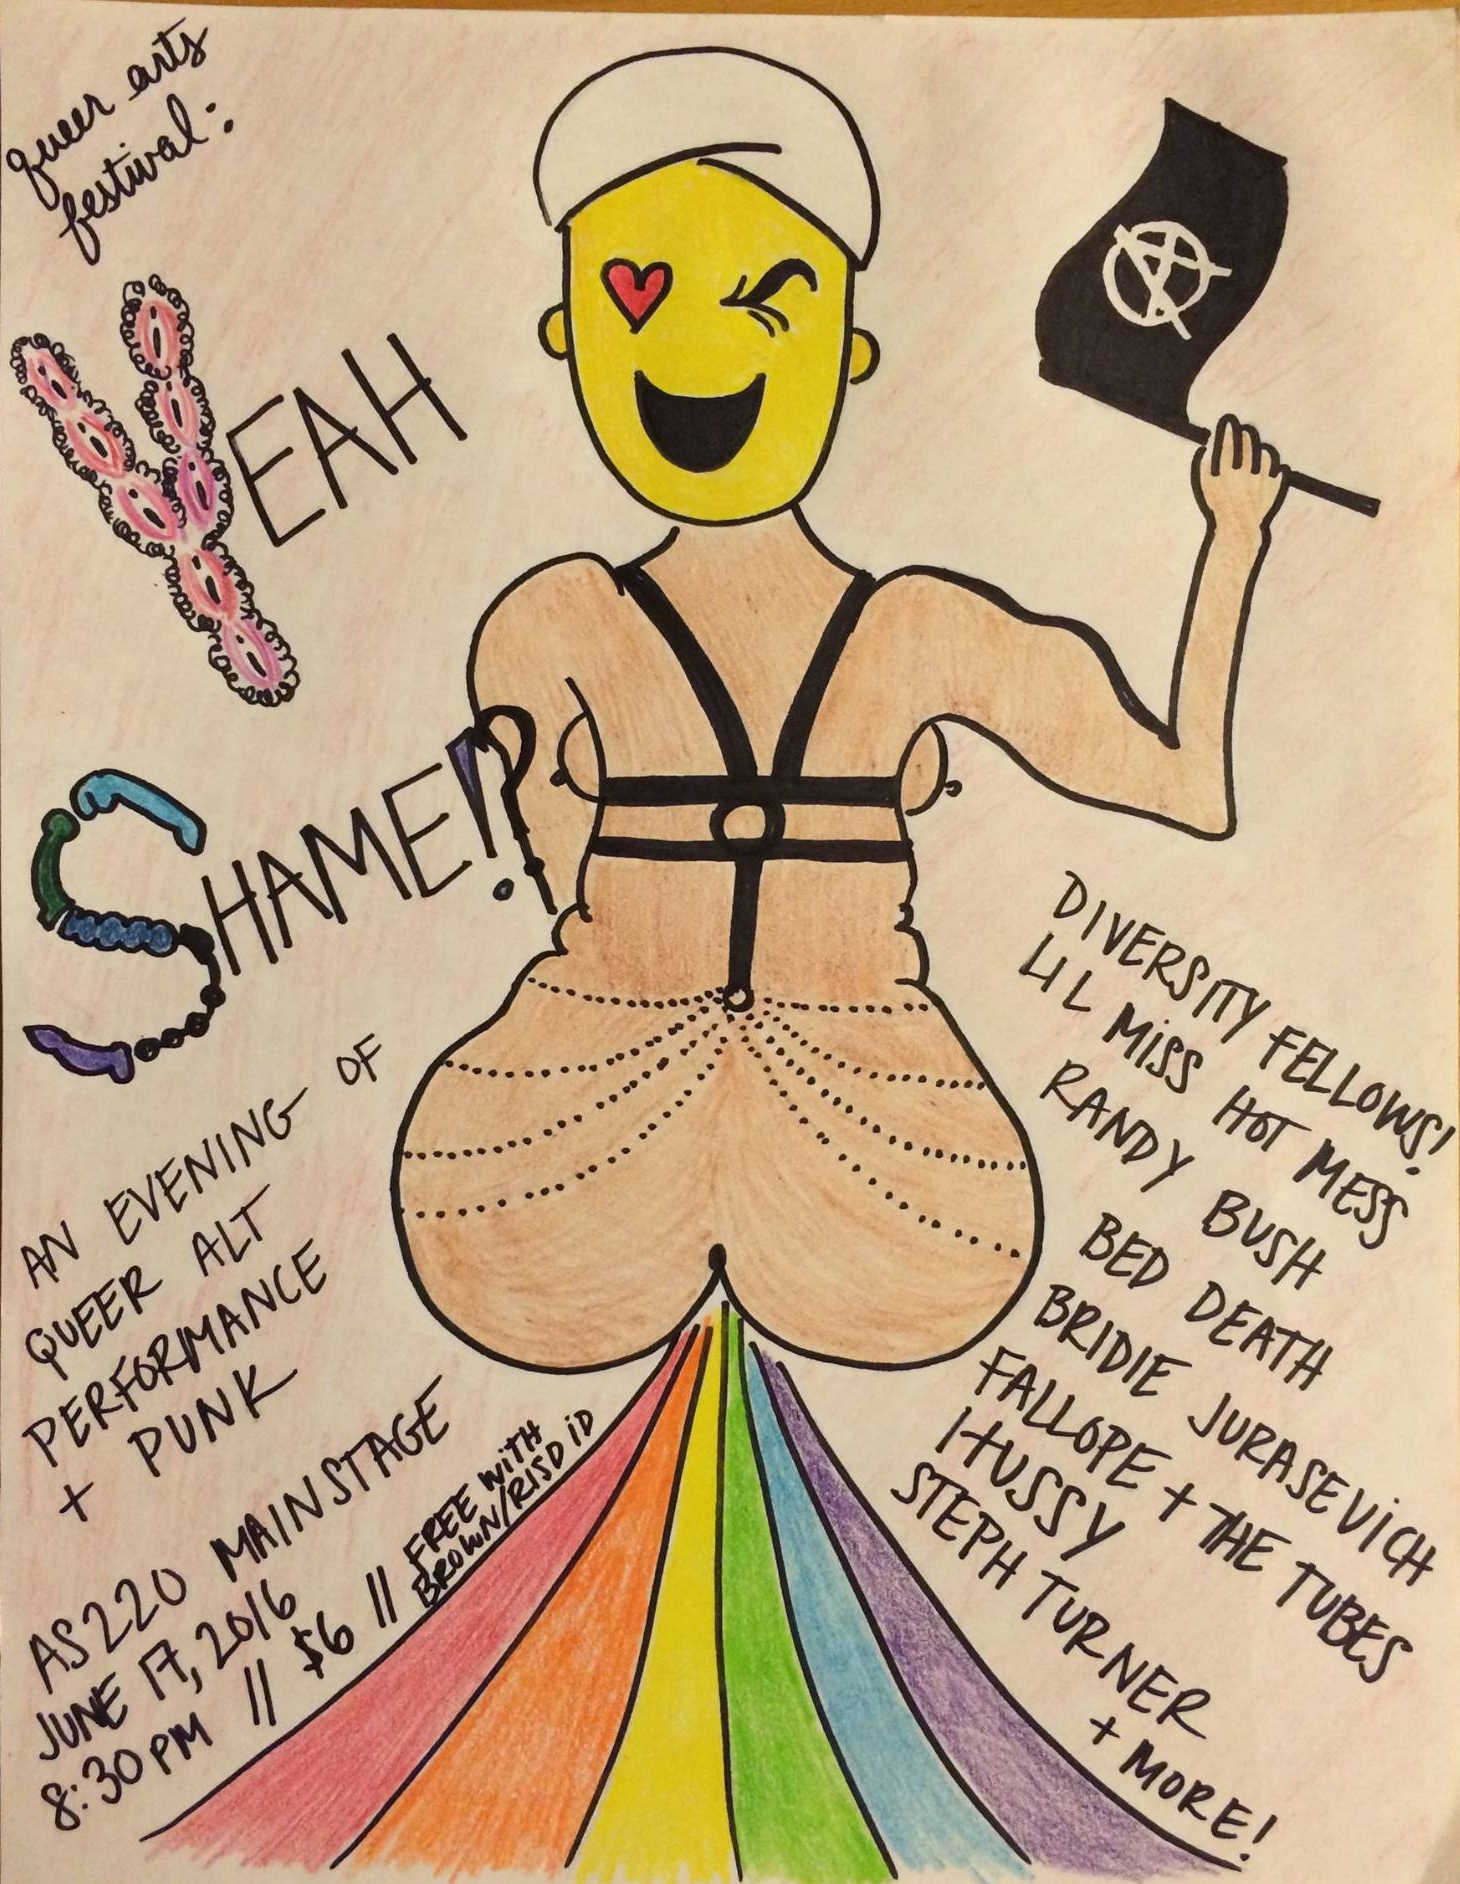 queer arts
festival:
YEAH
SHAME!?
AN EVENING OF
QUEER ALT
PERFORMANCE
+ PUNK
AS220 MAINSTAGE
JUNE 17, 2016
8:30PM // $6 // FREE WITH
BROWN/RISD iD
DIVERSITY FELLOWS!
LIL MiSS HOT MESS
RANDY BUSH
BED DEATH
BRIDIE JURASEViCH
FALLOPE + THE TUBES
HUSSY
STEPH TURNER
+ MORE!